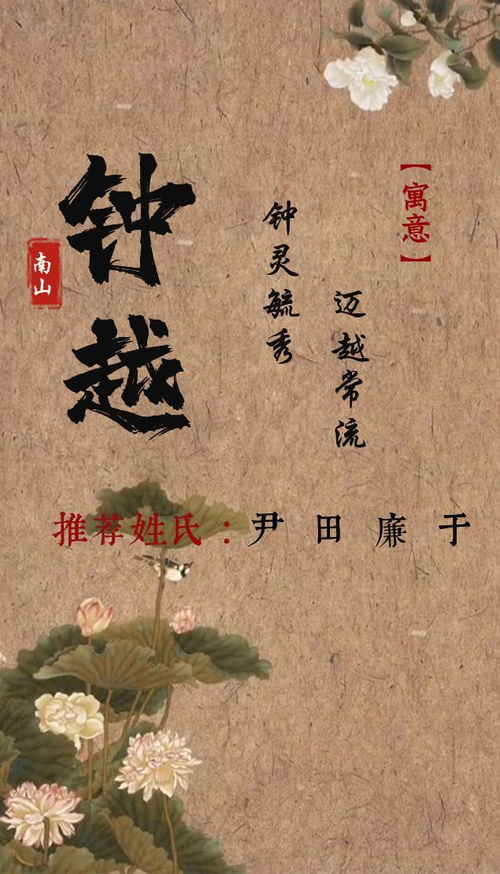 钟越
南山
【寓意】
钟灵毓秀
迈越常流
推荐姓氏：尹 田 廉 于